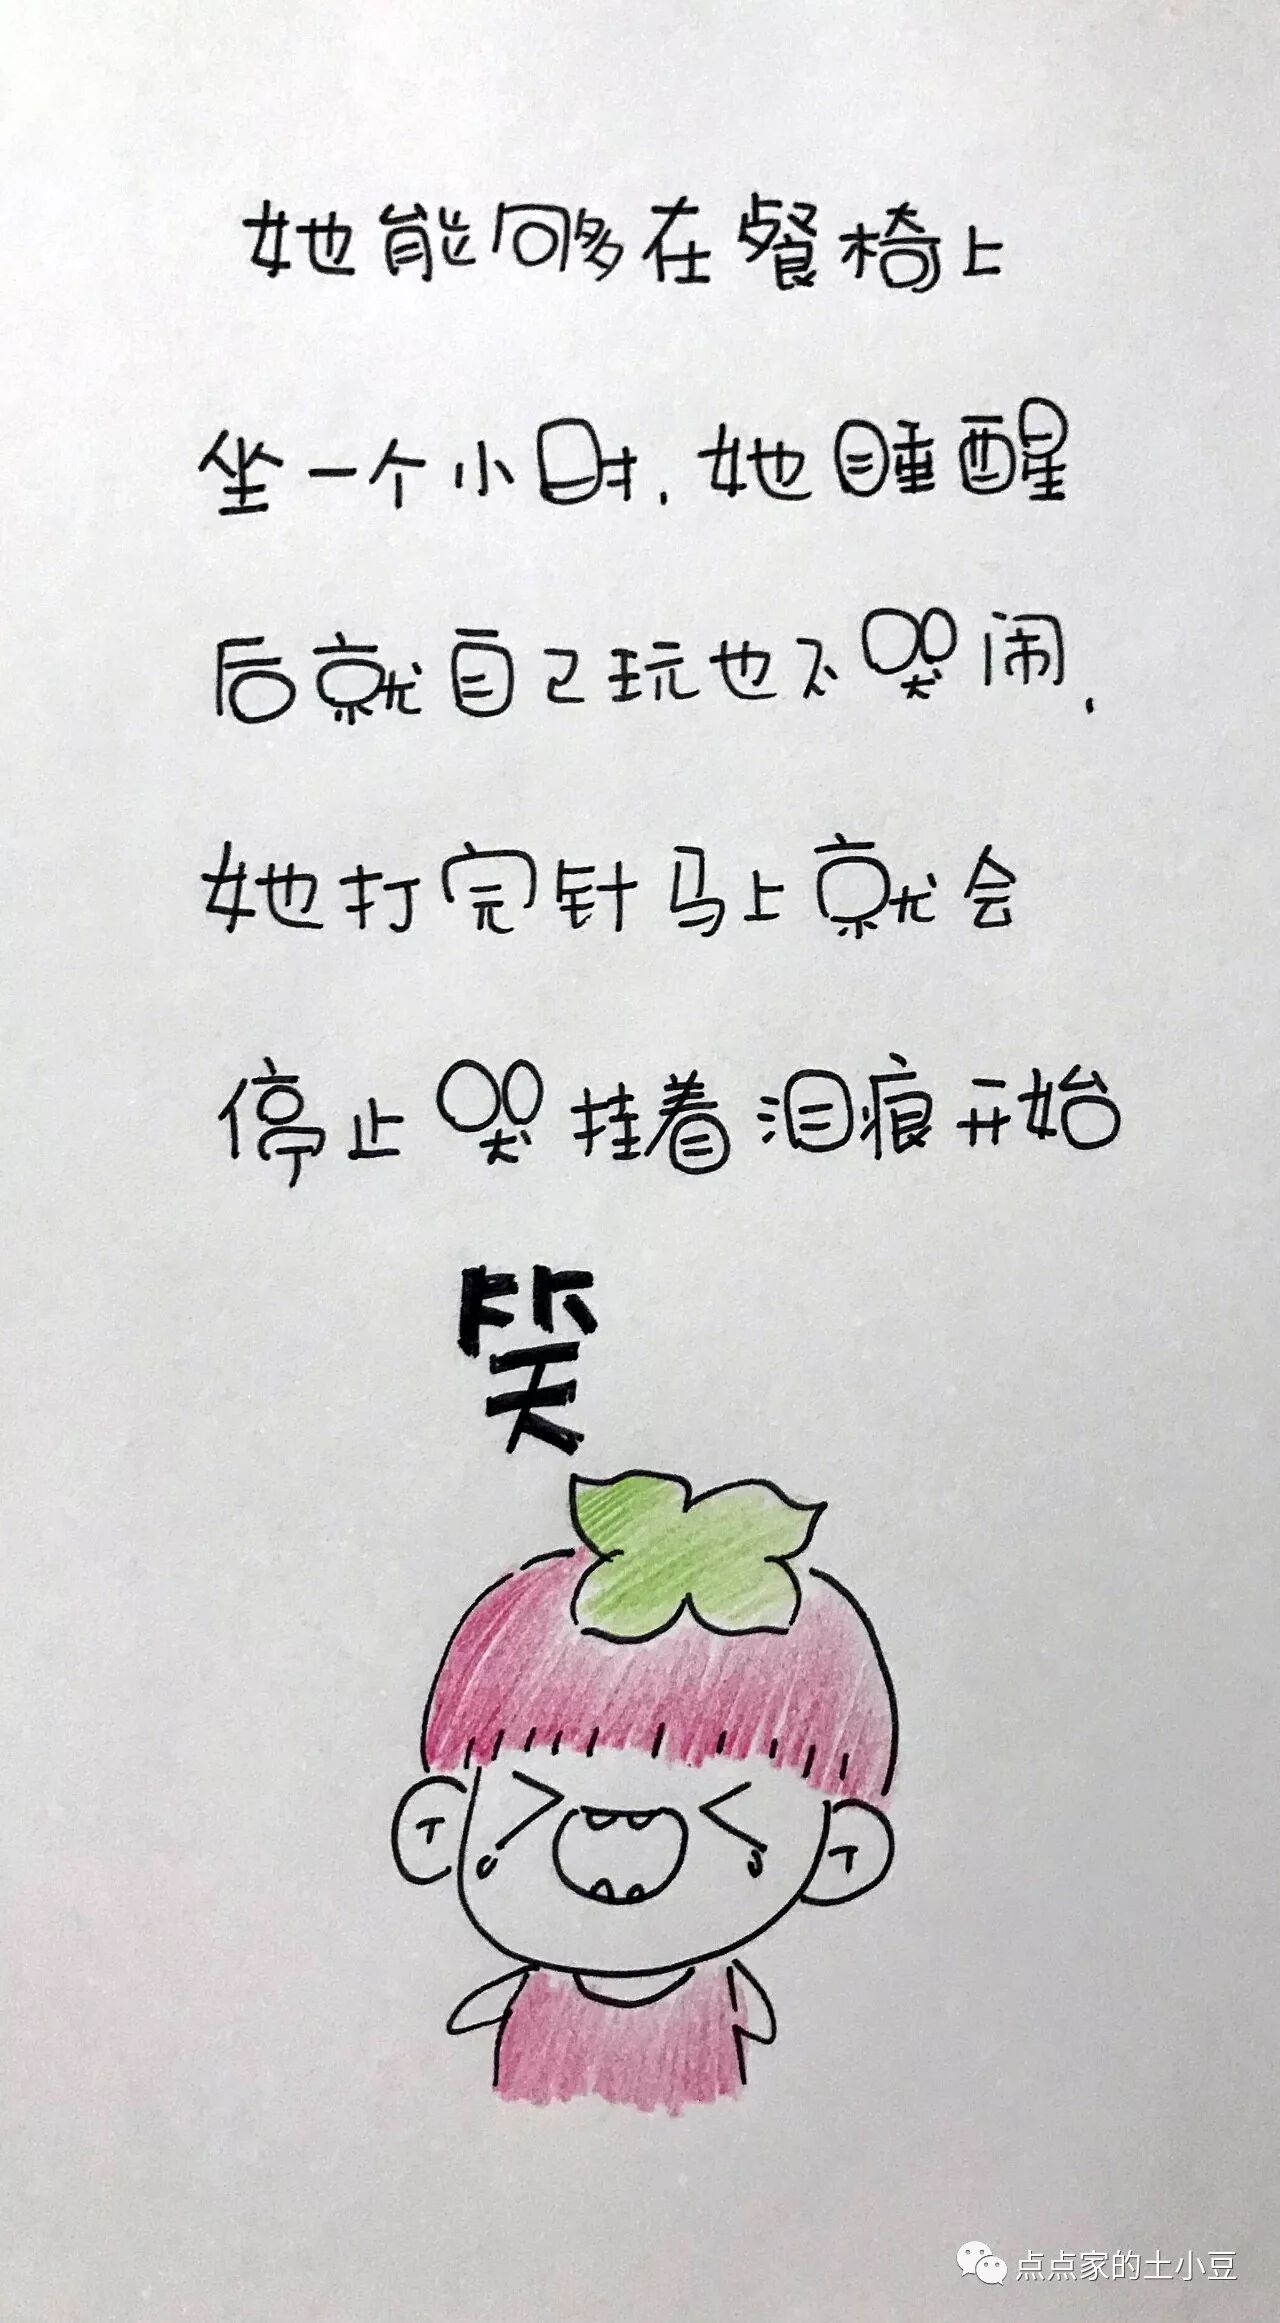 她能够在餐椅上
坐一个小时,她睡醒
后就自己玩也不哭闹,
她打完针马上就会
停止哭挂着泪痕开始
笑
T T
点点家的土小豆